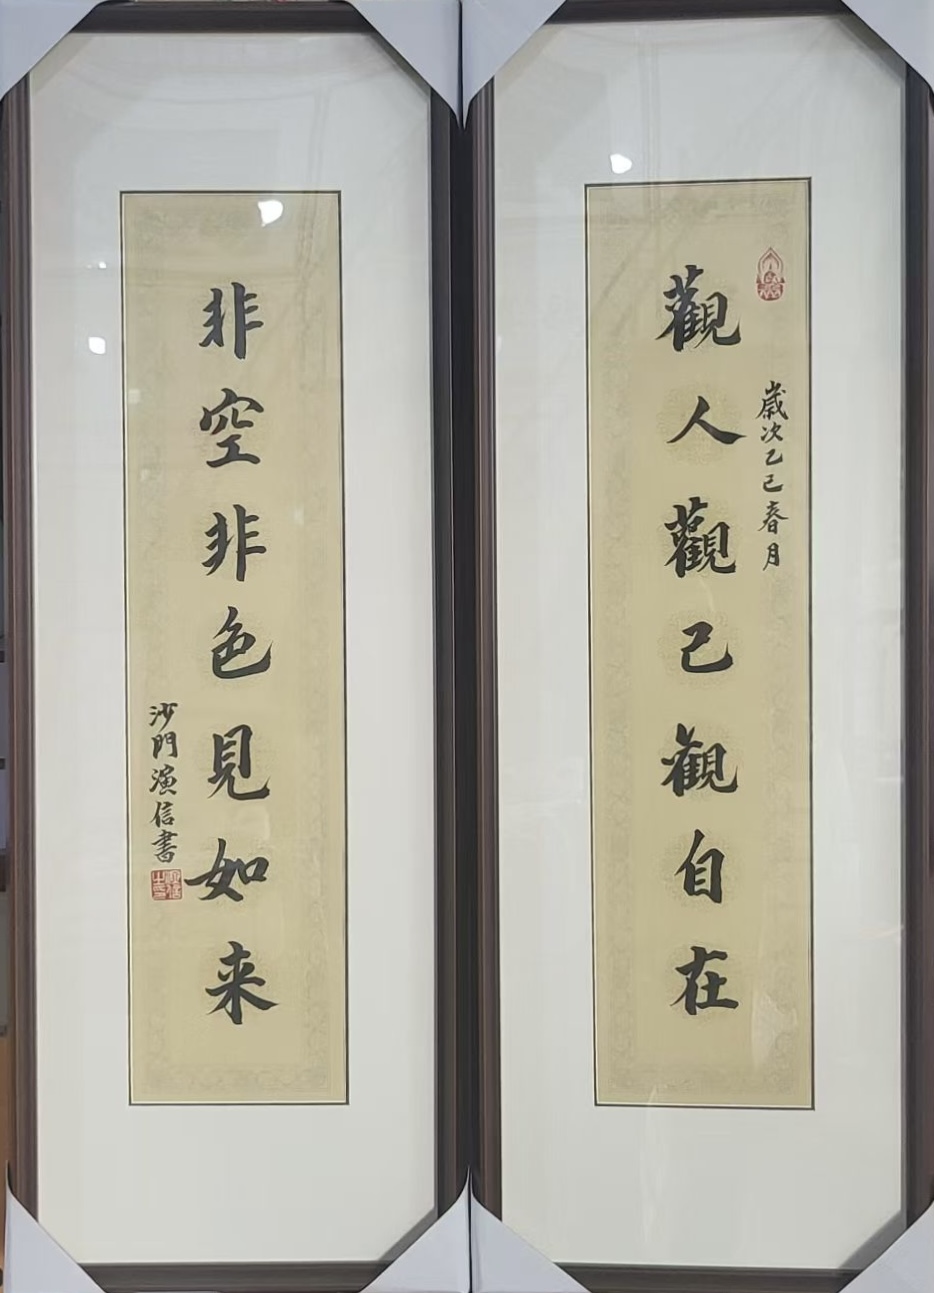 歲次乙巳春月
觀人觀己觀自在
非空非色見如来
沙門演信書